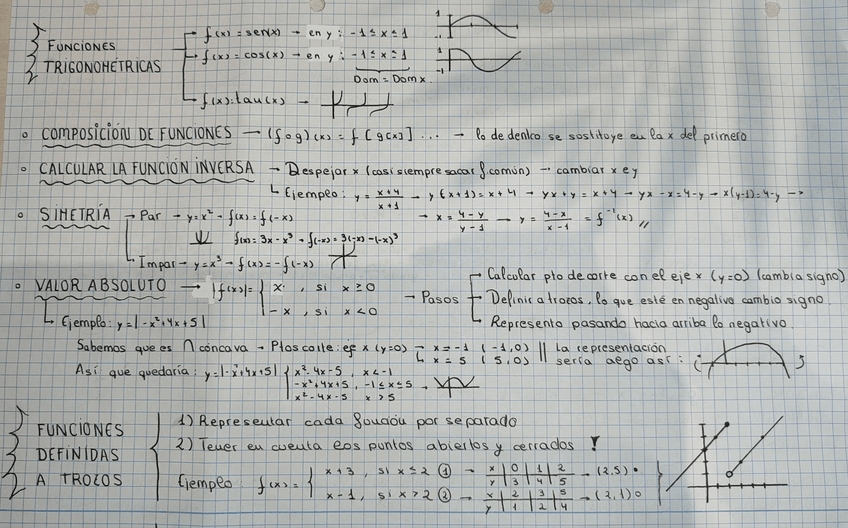 FUNCIONES TRIGONOMÉTRICAS
f(x) = sen(x) → en y : -1 ≤ x ≤ 1
f(x) = cos(x) → en y : -1 ≤ x ≤ 1
Dom = Dom x
f(x)=tau(x) →
1
-1
1
-1
COMPOSICIÓN DE FUNCIONES → (f o g) (x) = f [g(x)] ... → lo de dentro se sostituye en la x del primero
CALCULAR LA FUNCIÓN INVERSA → Despejar x (casi siempre sacar f.común) → cambiar x e y
Ejemplo: y = x+4 / x+1 → y (x+1) = x+4 → yx + y = x+4 → yx - x = 4-y → x(y-1) = 4-y →
→ x = 4-y / y-1 → y = 4-x / x-1 = f⁻¹(x) //
SIMETRÍA → Par → y=x² → f(x) = f(-x)
f(x) = 3x - x³ → f(-x) = 3(-x) - (-x)³
Impar → y = x³ → f(x) = -f(-x)
VALOR ABSOLUTO → |f(x)| = { x , si x ≥ 0
- x , si x < 0
→ Pasos
Calcular pto de corte con el eje x (y=0) (cambia signo)
Definir a trozos, lo que esté en negativo cambio signo
Represento pasando hacia arriba lo negativo.
Ejemplo: y = |-x²+4x+5|
Sabemos que es ∩ cóncava → Ptos corte: ej x (y=0) → x = -1 (-1,0)
x = 5 (5,0)
|| La representación sería algo así :
Así que quedaría: y = |-x²+4x+5| { x²-4x-5 , x < -1
-x²+4x+5 , -1 ≤ x ≤ 5
x²-4x-5 x > 5
FUNCIONES DEFINIDAS A TROZOS
1) Representar cada función por separado
2) Tener en cuenta los puntos abiertos y cerrados !
Ejemplo: f(x) = { x+3 , si x ≤ 2 ① → x | 0 | 1 | 2
y | 3 | 4 | 5 → (2,5) •
x-1 , si x > 2 ② → x | 2 | 3 | 5
y | 1 | 2 | 4 → (2,1) o